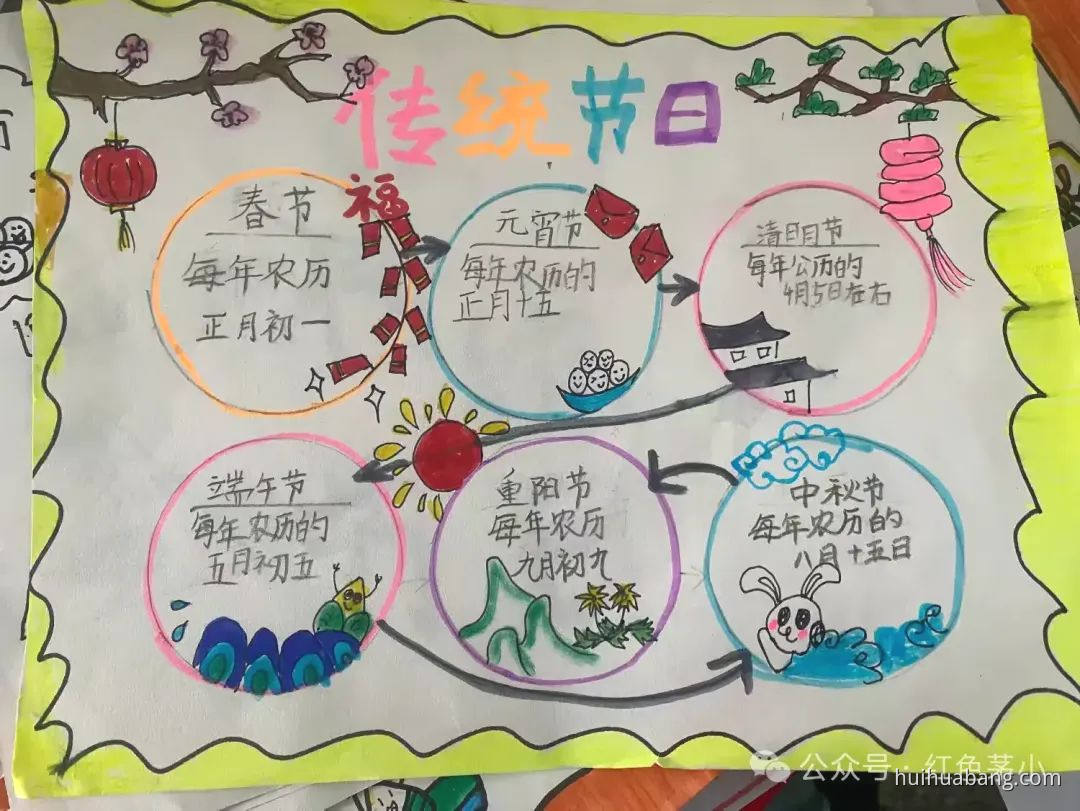 传统节日
福
春节
每年农历
正月初一
元宵节
每年农历的
正月十五
清明节
每年公历的
4月5日左右
端午节
每年农历的
五月初五
重阳节
每年农历
九月初九
中秋节
每年农历的
八月十五日
公众号·红色茅小
huihuabang.com